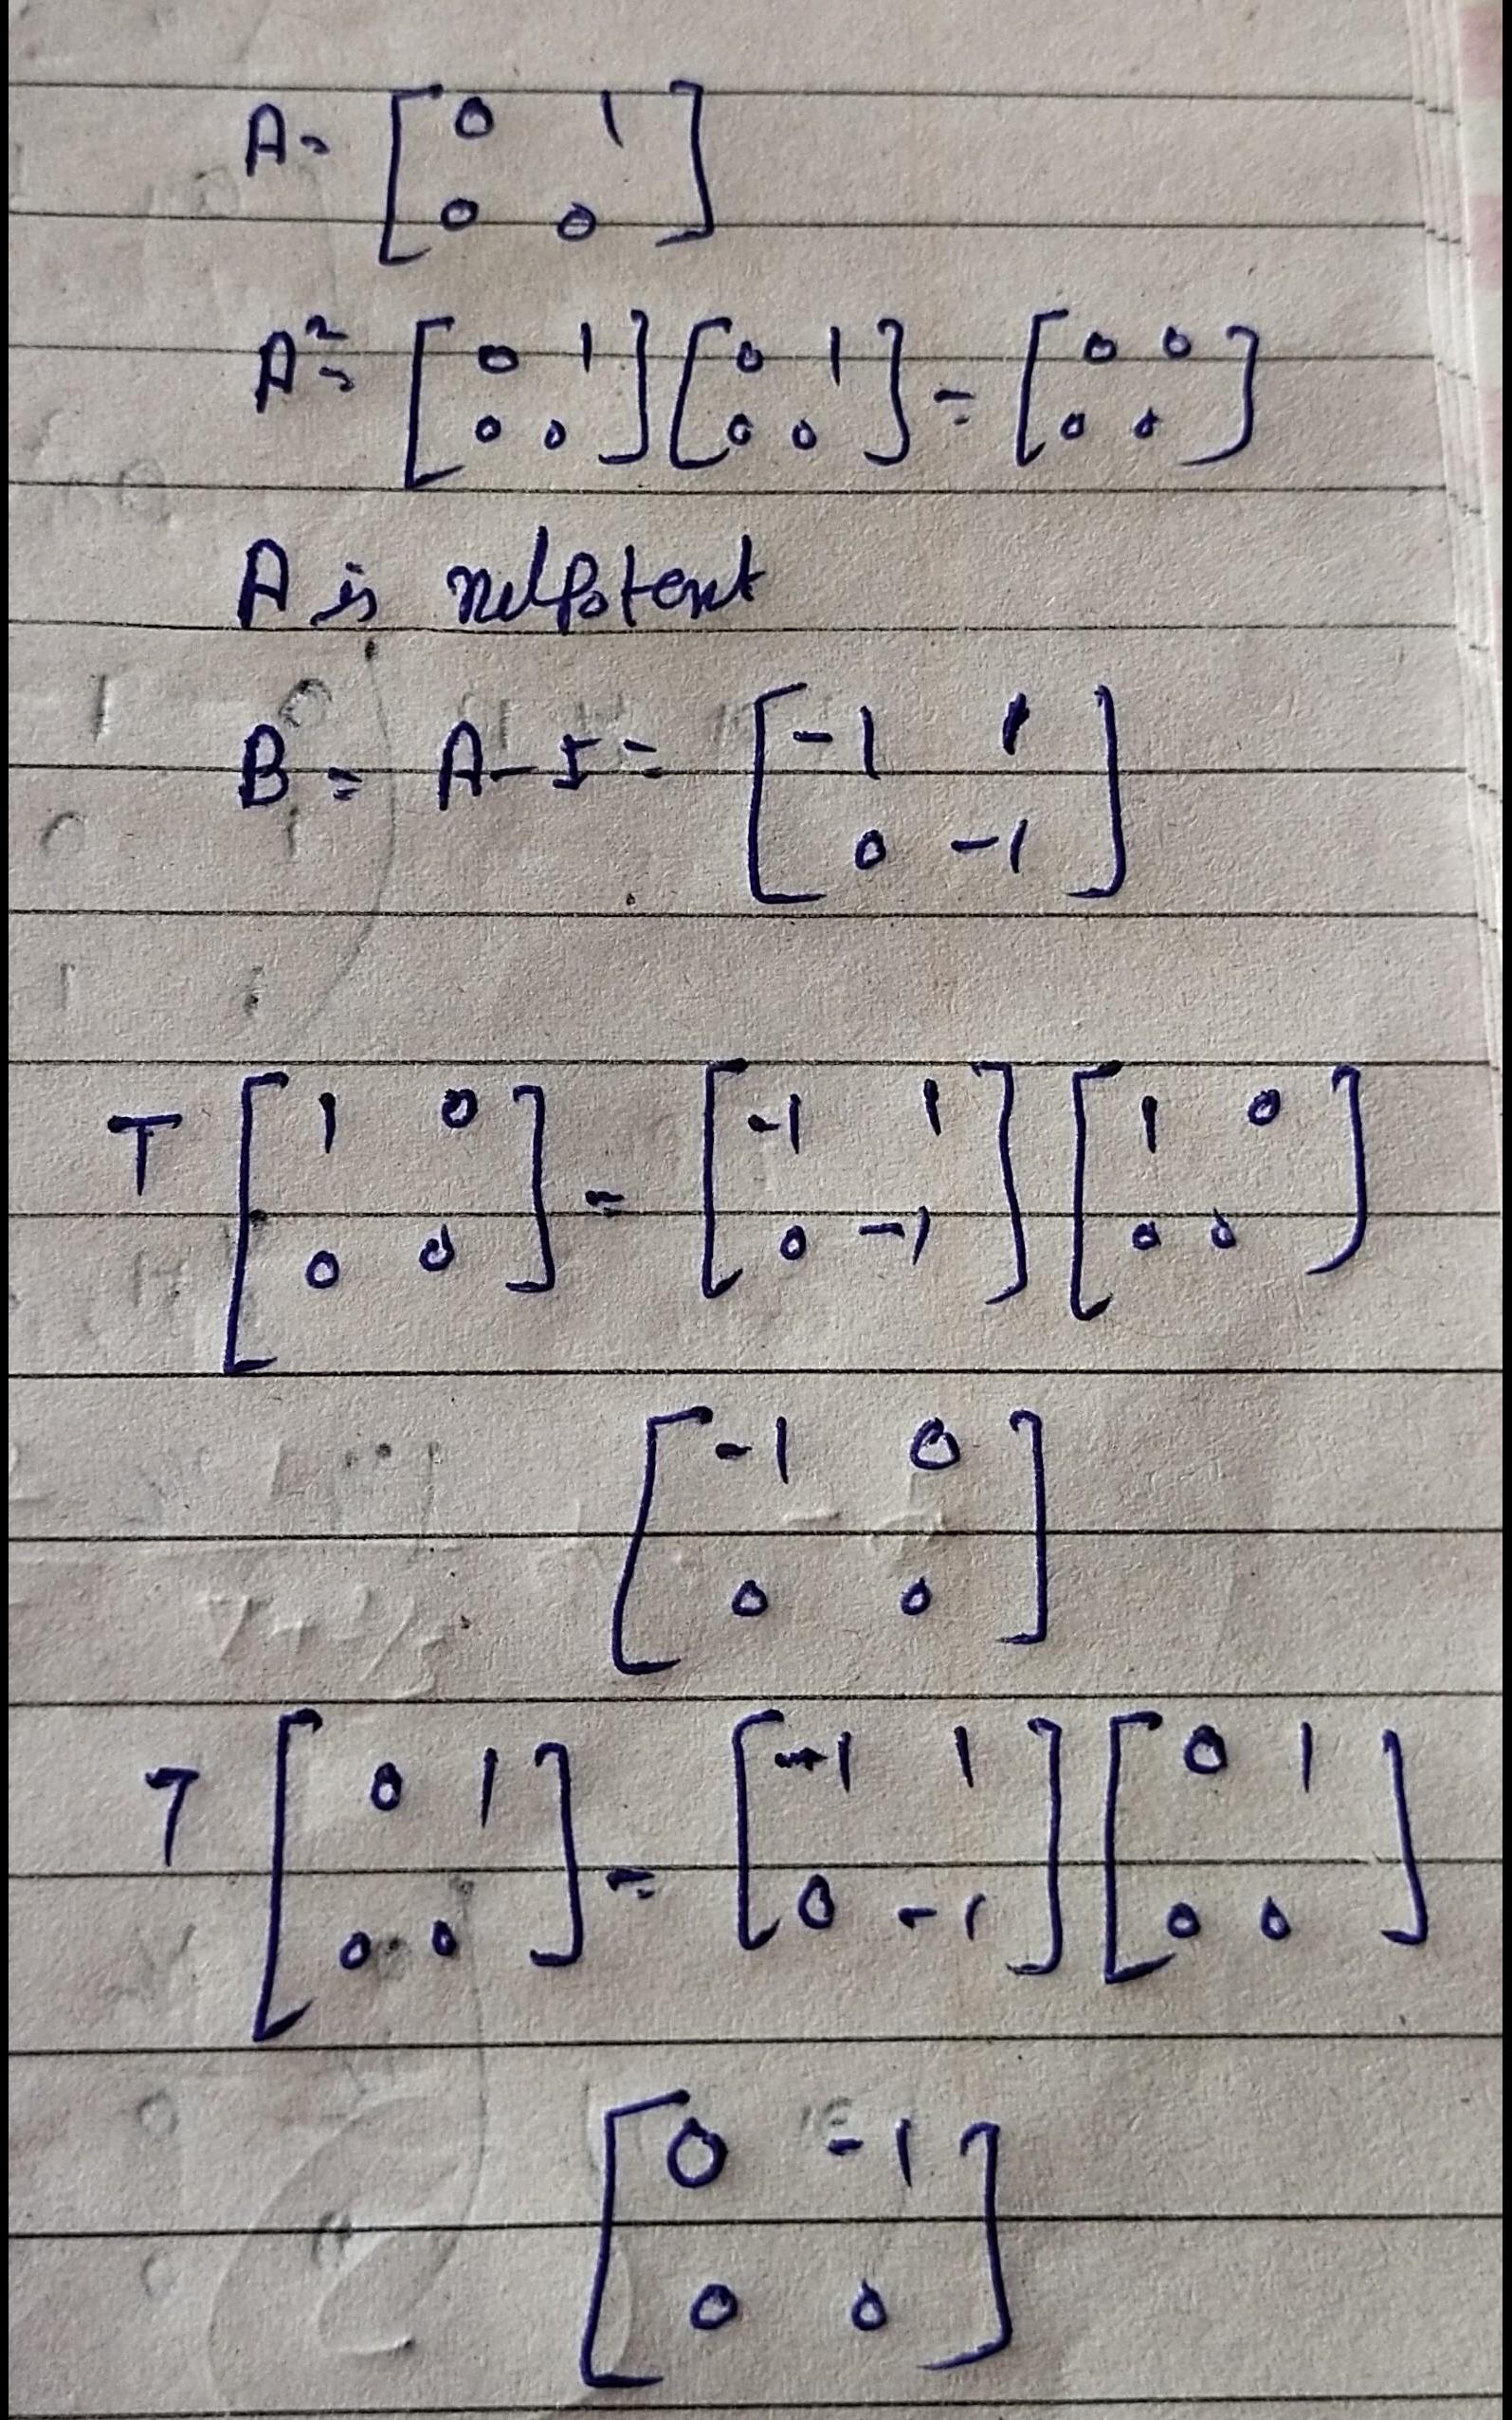 A = [ 0 1
0 0 ]
A² = [ 0 1
0 0 ] [ 0 1
0 0 ] = [ 0 0
0 0 ]
A is nilpotent
B = A - I = [ -1 1
0 -1 ]
T [ 1 0
0 0 ] = [ -1 1
0 -1 ] [ 1 0
0 0 ]
[ -1 0
0 0 ]
T [ 0 1
0 0 ] = [ -1 1
0 -1 ] [ 0 1
0 0 ]
[ 0 -1
0 0 ]